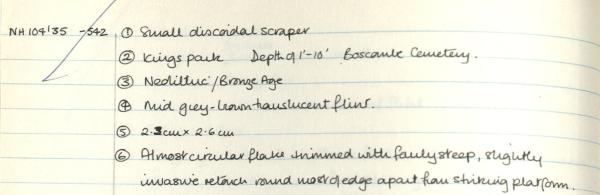 NH 104'35 - 542 ① Small discoidal scraper
② Kings park Depth of 1'-10' Boscombe Cemetery.
③ Neolithic/Bronze Age
④ Mid grey-brown translucent flint.
⑤ 2.3cm x 2.6cm
⑥ Almost circular flake trimmed with fairly steep, slightly
invasive retouch round most of edge apart from striking platform.